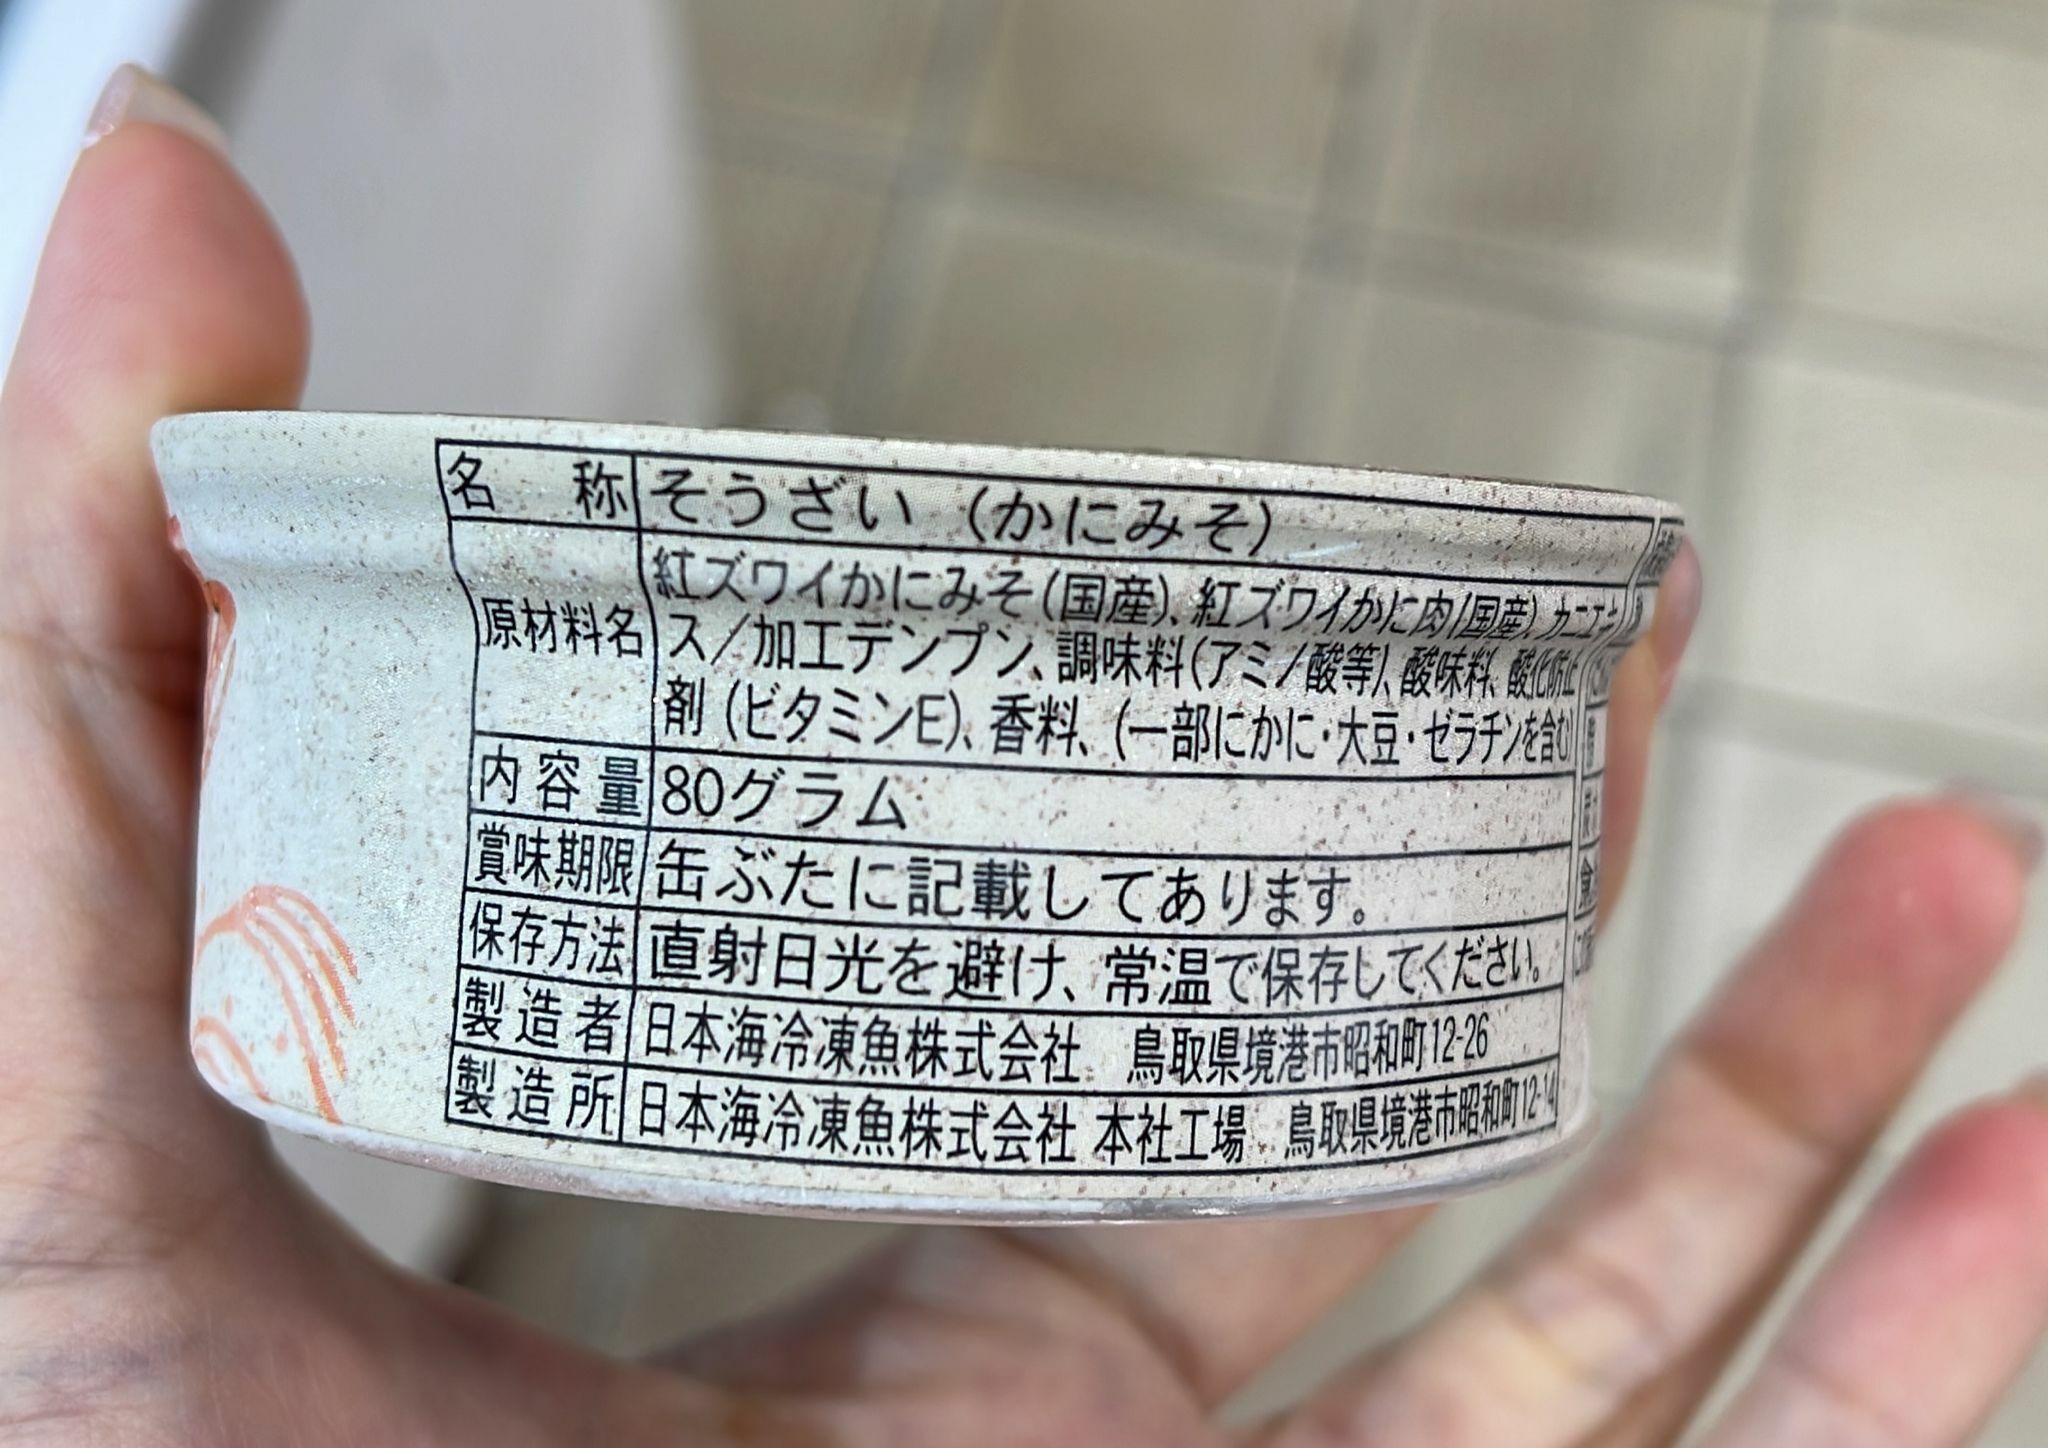 名称 そうざい （かにみそ）
原材料名 紅ズワイかにみそ(国産)、紅ズワイかに肉(国産)、カニエキ
ス／加工デンプン、調味料(アミノ酸等)、酸味料、酸化防止
剤 (ビタミンE)、香料、(一部にかに・大豆・ゼラチンを含む)
内容量 80グラム
賞味期限 缶ぶたに記載してあります。
保存方法 直射日光を避け、常温で保存してください。
製造者 日本海冷凍魚株式会社 鳥取県境港市昭和町12-26
製造所 日本海冷凍魚株式会社 本社工場 鳥取県境港市昭和町12-14